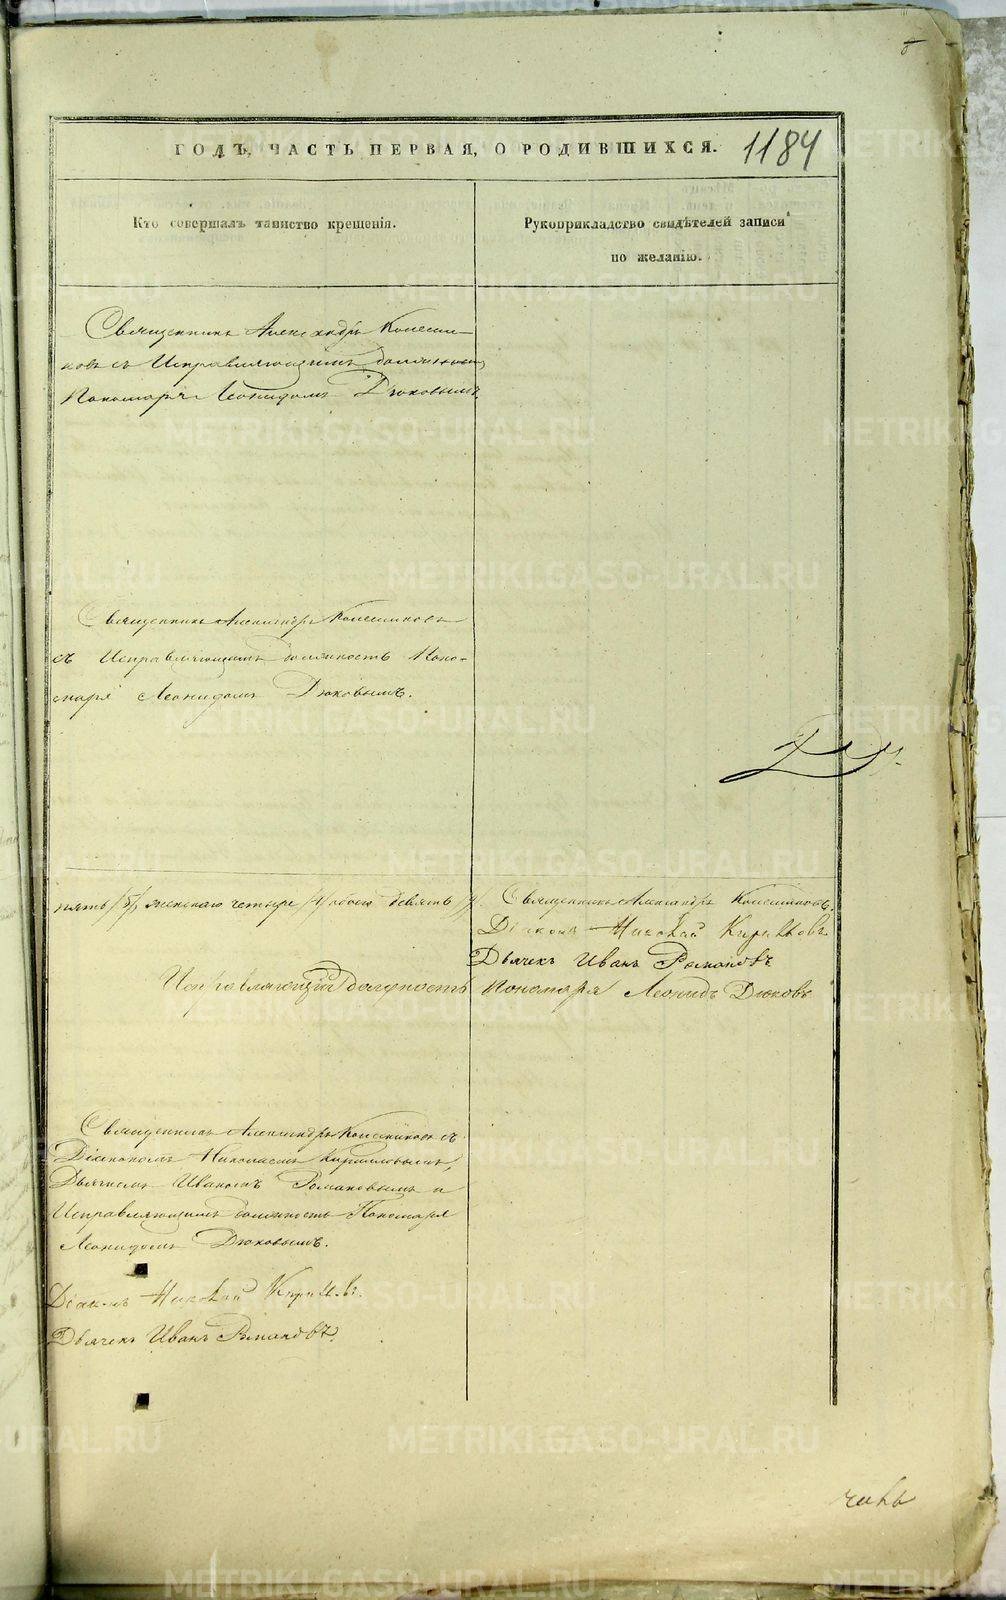 ГОДЪ, ЧАСТЬ ПЕРВАЯ, О РОДИВШИХСЯ. 1184
Кто совершалъ таинство крещенія.
Рукоприкладство свидѣтелей записи
по желанію.
Священникъ Александръ Колесни-
ковъ съ Исправляющимъ должность
Пономаря Леонидомъ Дюковымъ
Священникъ Александръ Колесниковъ
съ Исправляющимъ должность Поно-
маря Леонидомъ Дюковымъ.
пять /5/ женскаго четыре /4/ обоего девять /9/
Священникъ Александръ Колесниковъ.
Діаконъ Николай Кирилловъ
Дьячекъ Иванъ Романовъ
Исправляющій должность Пономаря Леонидъ Дюковъ
Священникъ Александръ Колесниковъ съ
Діакономъ Николаемъ Кирилловымъ,
Дьячкомъ Иваномъ Романовымъ и
Исправляющимъ должность Пономаря
Леонидомъ Дюковымъ.
Діаконъ Николай Кирилловъ.
Дьячекъ Иванъ Романовъ
METRIKI.GASO-URAL.RU